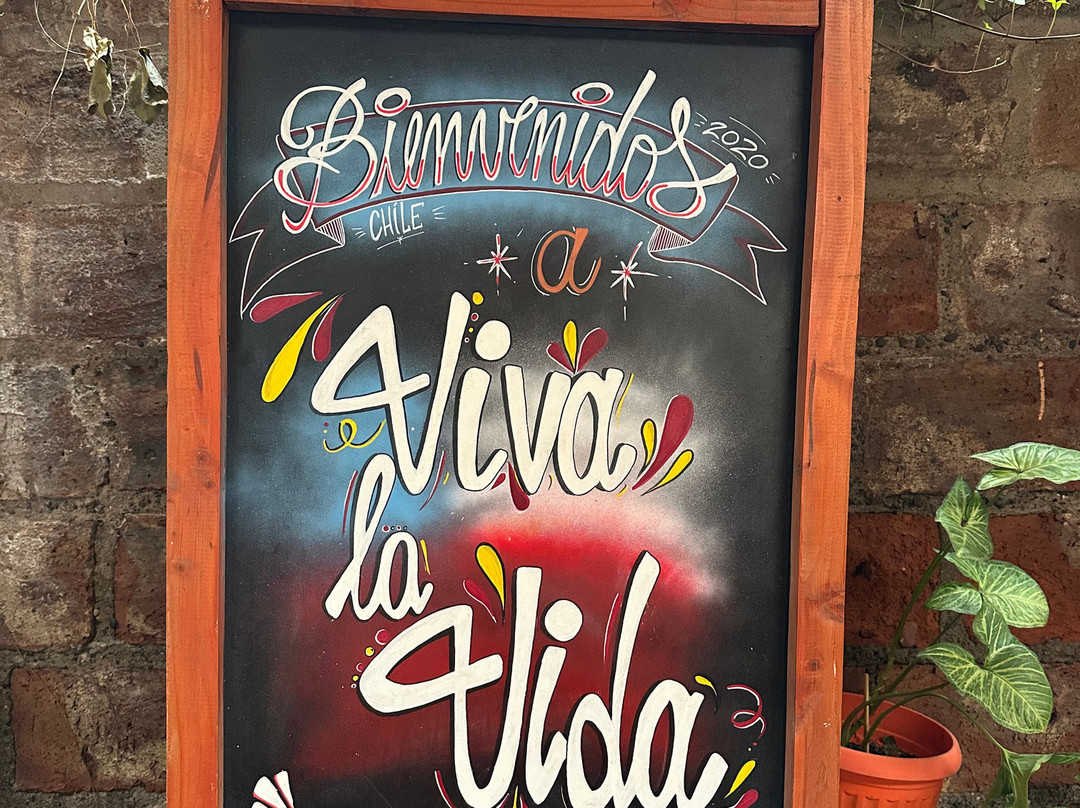 Bienvenidos
2020
CHILE
a
Viva
la
Vida